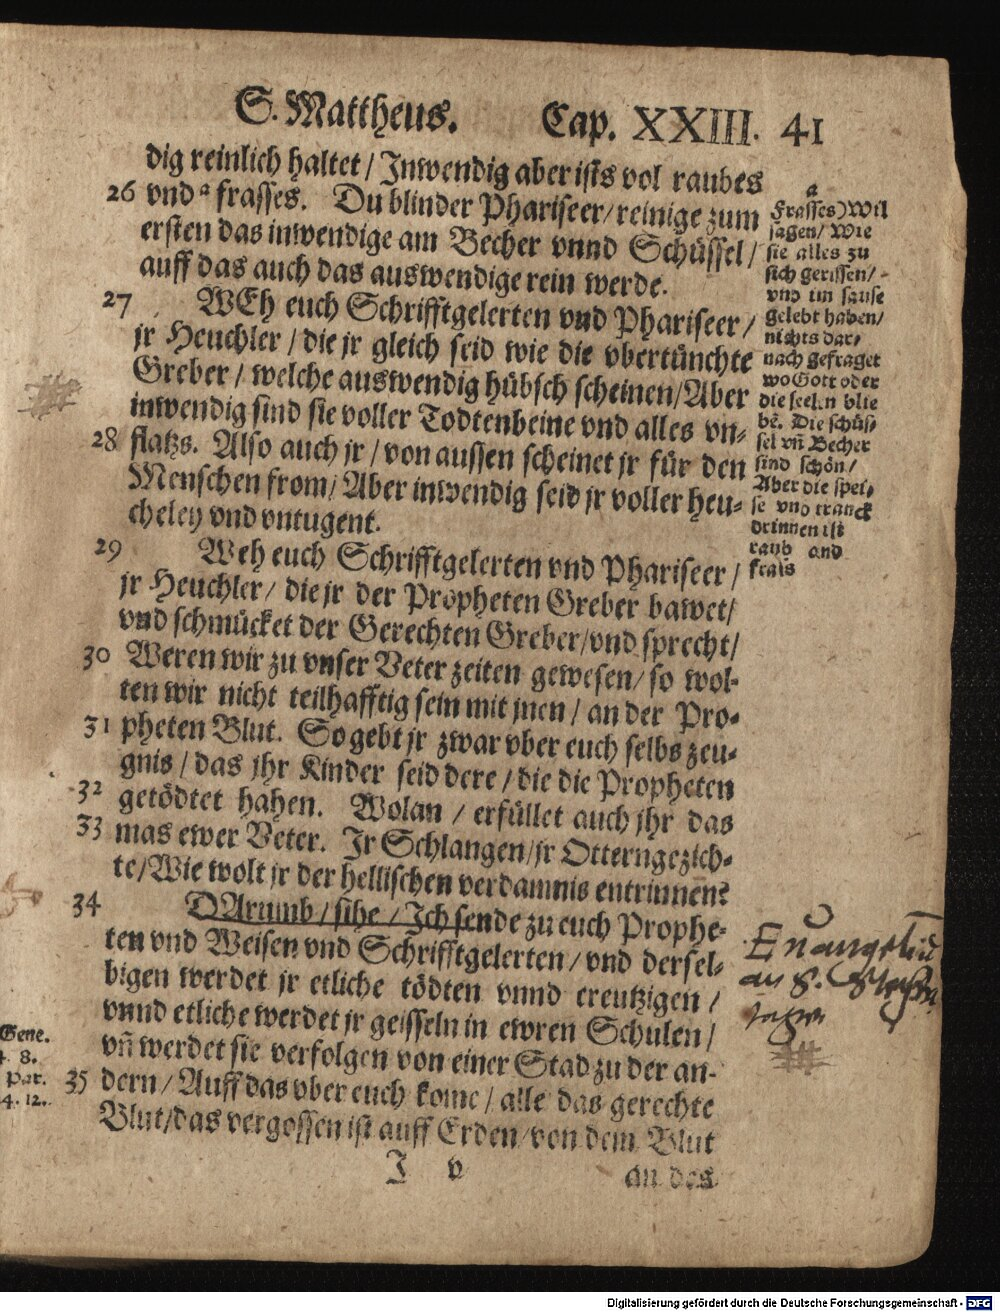 S. Mattheus. Cap. XXIII. 41
dig reinlich haltet / Inwendig aber ists vol raubes
26 vnd a frasses. Du blinder Phariseer / reinige zum
ersten das inwendige am Becher vnnd Schüssel /
auff das auch das auswendige rein werde.
27 WEh euch Schrifftgelerten vnd Phariseer /
jr Heuchler / die jr gleich seid wie die vbertünchte
Greber / welche auswendig hübsch scheinen / Aber
inwendig sind sie voller Todtenbeine vnd alles vn-
28 flatzs. Also auch jr / von aussen scheinet jr für den
Menschen from / Aber inwendig seid jr voller heu-
cheley vnd vntugent.
29 Weh euch Schrifftgelerten vnd Phariseer /
jr Heuchler / die jr der Propheten Greber bawet /
vnd schmücket der Gerechten Greber / vnd sprecht /
30 Weren wir zu vnser Veter zeiten gewesen / so wol-
ten wir nicht teilhafftig sein mit jnen / an der Pro-
31 pheten Blut. So gebt jr zwar vber euch selbs zeu-
gnis / das jhr Kinder seid dere / die die Propheten
32 getödtet hahen. Wolan / erfüllet auch jhr das
33 mas ewer Veter. Ir Schlangen / jr Otterngezich-
te / Wie wolt jr der hellischen verdamnis entrinnen?
34 DArumb / sihe / Ich sende zu euch Prophe-
ten vnd Weisen vnd Schrifftgelerten / vnd dersel-
bigen werdet jr etliche tödten vnnd creutzigen /
vnnd etliche werdet jr geisseln in ewren Schulen /
vñ werdet sie verfolgen von einer Stad zu der an-
35 dern / Auff das vber euch kome / alle das gerechte
Blut / das vergossen ist auff Erden / von dem Blut
J v an des
a
Frasses) Wil
sagen / Wie
sie alles zu
sich gerissen /
vnd im sause
gelebt haben /
nichts dar-
nach gefraget
wo Gott oder
die seelen blie
bē. Die schüs-
sel vñ Becher
sind schön /
Aber die spei-
se vnd tranck
drinnen ist
raub and
frais
Euangeliū
an S. Stephan
tage
Gene.
4. 8.
Par.
4. 12.
Digitalisierung gefördert durch die Deutsche Forschungsgemeinschaft - DFG